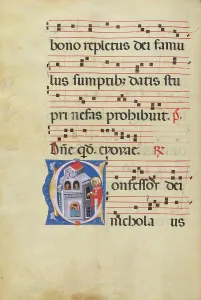 bono repletus dei famu
lus sumptibz datis stu
pri nefas prohibuit. p.
Dñe qd. R
onfessor dei
nichola us